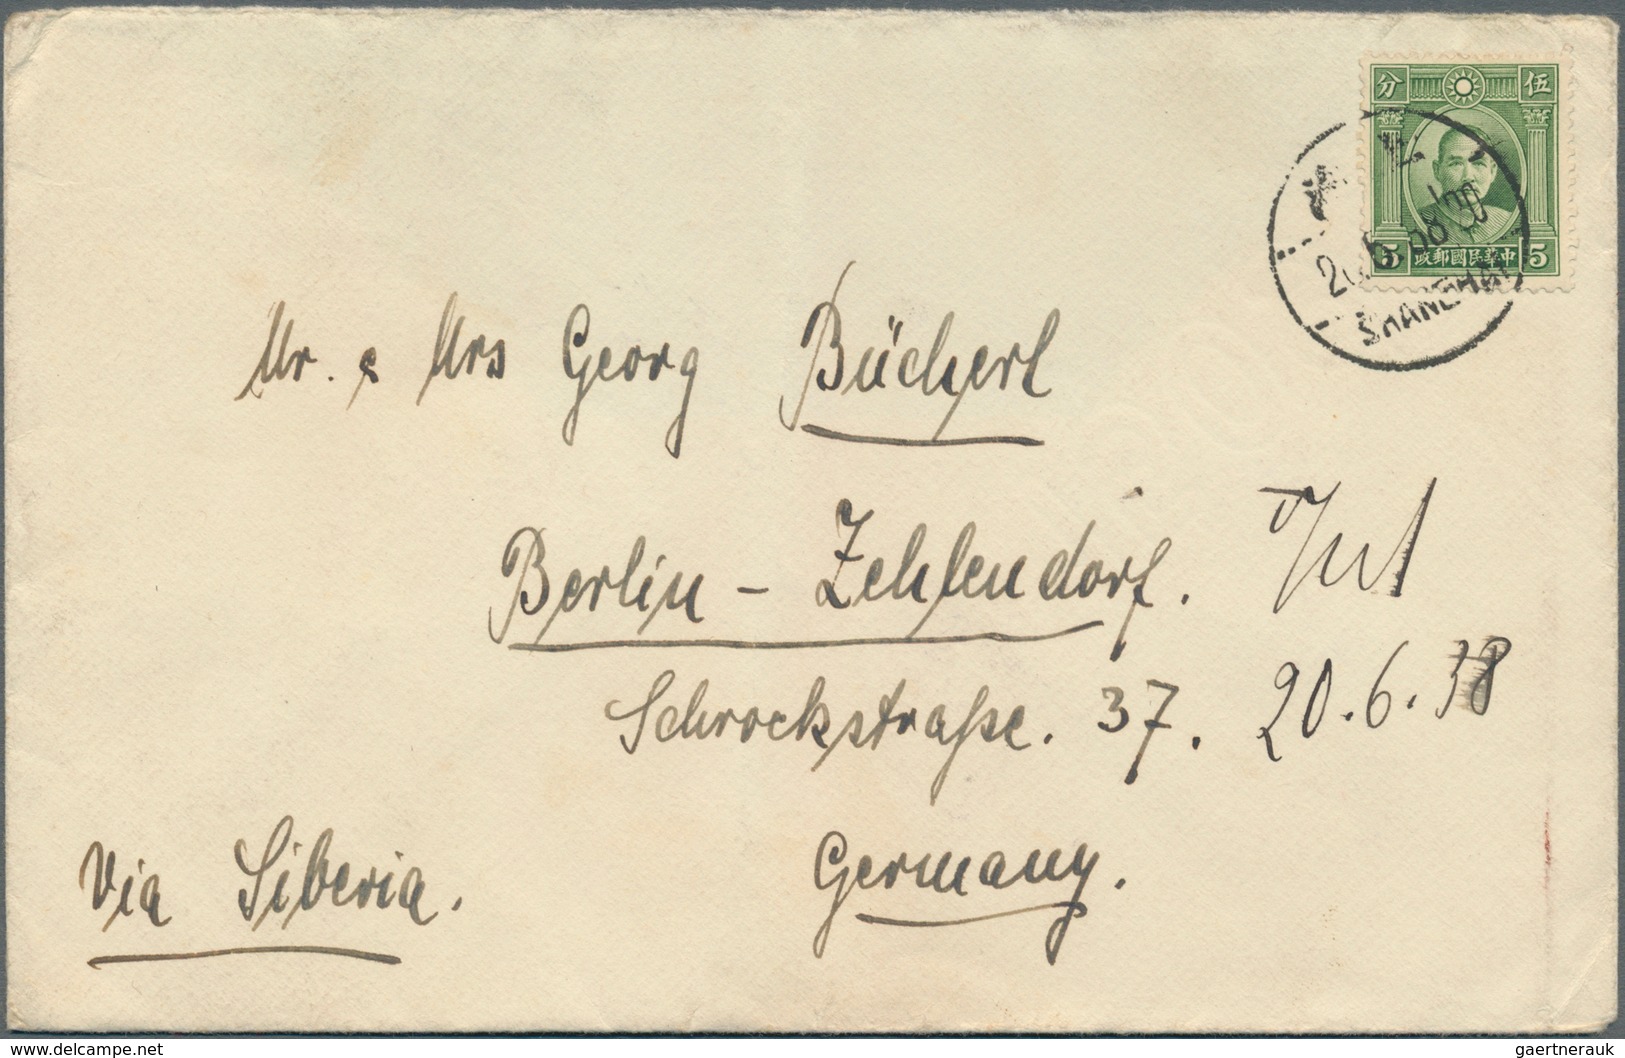 分 伍
5 中華民國郵政 5
SHANGHAI
Mr. & Mrs Georg Bücherl
Berlin - Zehlendorf.
Schrockstraße. 37. 20.6.38
Via Siberia. Germany.
gaertnerauk